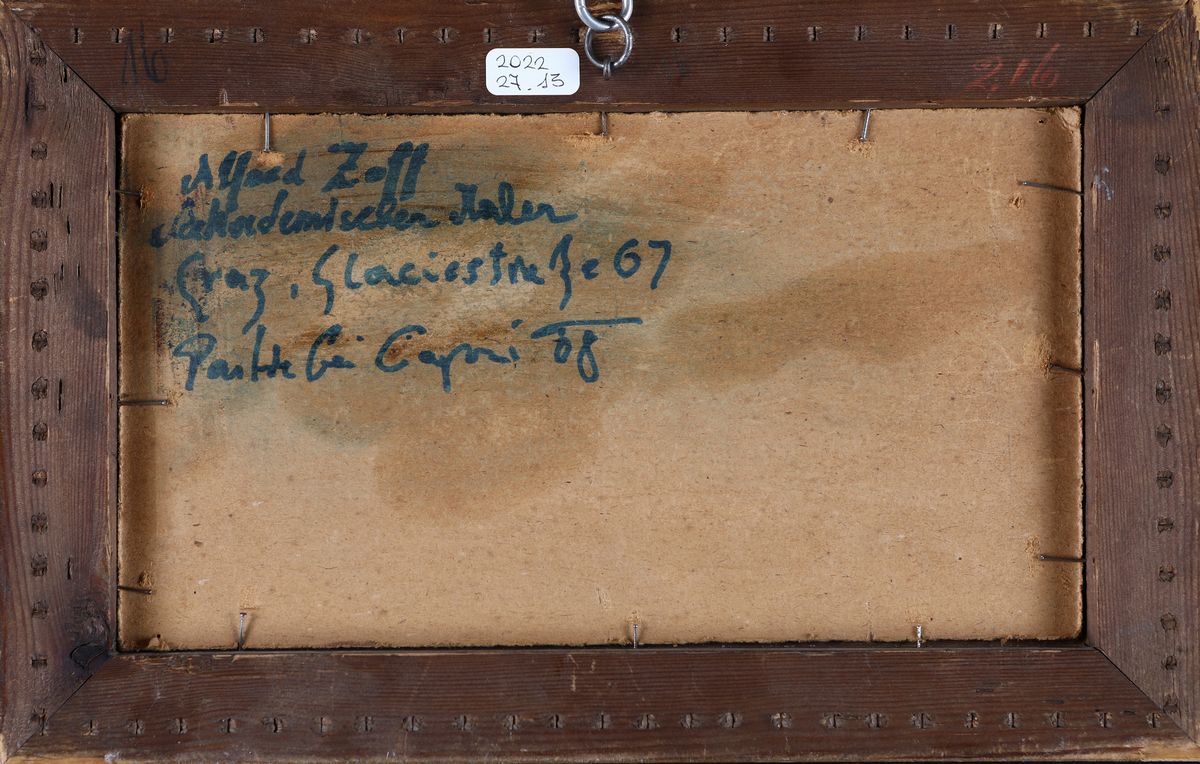 16
2022
27.13
216
Alfred Zoff
Akademischer Maler
Graz, Glacisstraße 67
Partie bei Capri 08